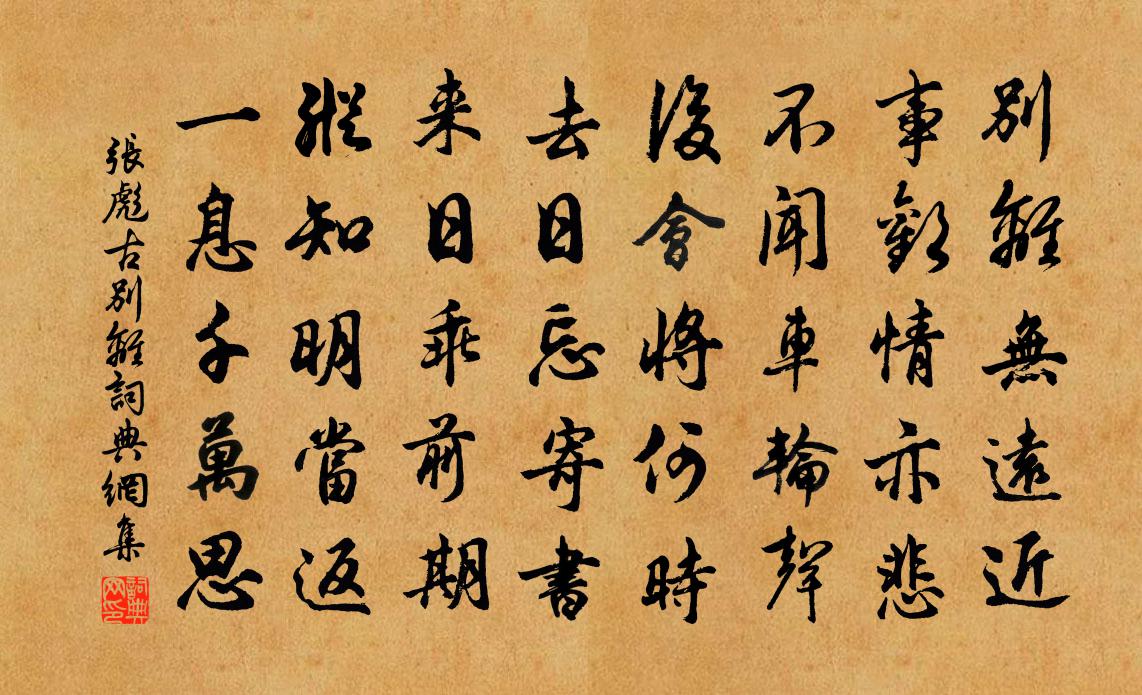 別離無遠近
事歡情亦悲
不聞車輪聲
後會將何時
去日忘寄書
来日乖前期
縱知明當返
一息千萬思
張彪古別離詞典網集
詞典網印